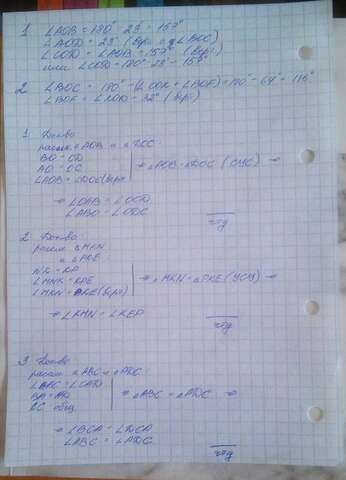 1 ∠AOB = 180° - 23° = 157°
∠AOD = 23° (верт. с ∠BOC)
∠COD = ∠AOB = 157° (верт.)
или ∠COD = 180° - 23° = 157°
2 ∠BOC = 180° - (∠COK + ∠BOF) = 180° - 64° = 116°
∠BOF = 32° (верт)
1 Док-во
рассм. △AOB и △DOC
BO = OD
AO = OC
∠AOB = ∠DOC (верт)
⇒ △AOB = △DOC (СУС) ⇒
⇒ ∠OAB = ∠OCD
∠ABO = ∠ODC
чтд
2 Док-во
рассм. △MKN
и △PKE
NK = KP
∠MNK = ∠KPE
∠MKN = ∠PKE (верт)
⇒ △MKN = △PKE (УСУ) ⇒
⇒ ∠KMN = ∠KEP
чтд
3 Док-во
рассм. △ABC и △ADC
∠BAC = ∠CAD
BA = AD
AC общ
⇒ △ABC = △ADC ⇒
⇒ ∠BCA = ∠DCA
∠ABC = ∠ADC
чтд